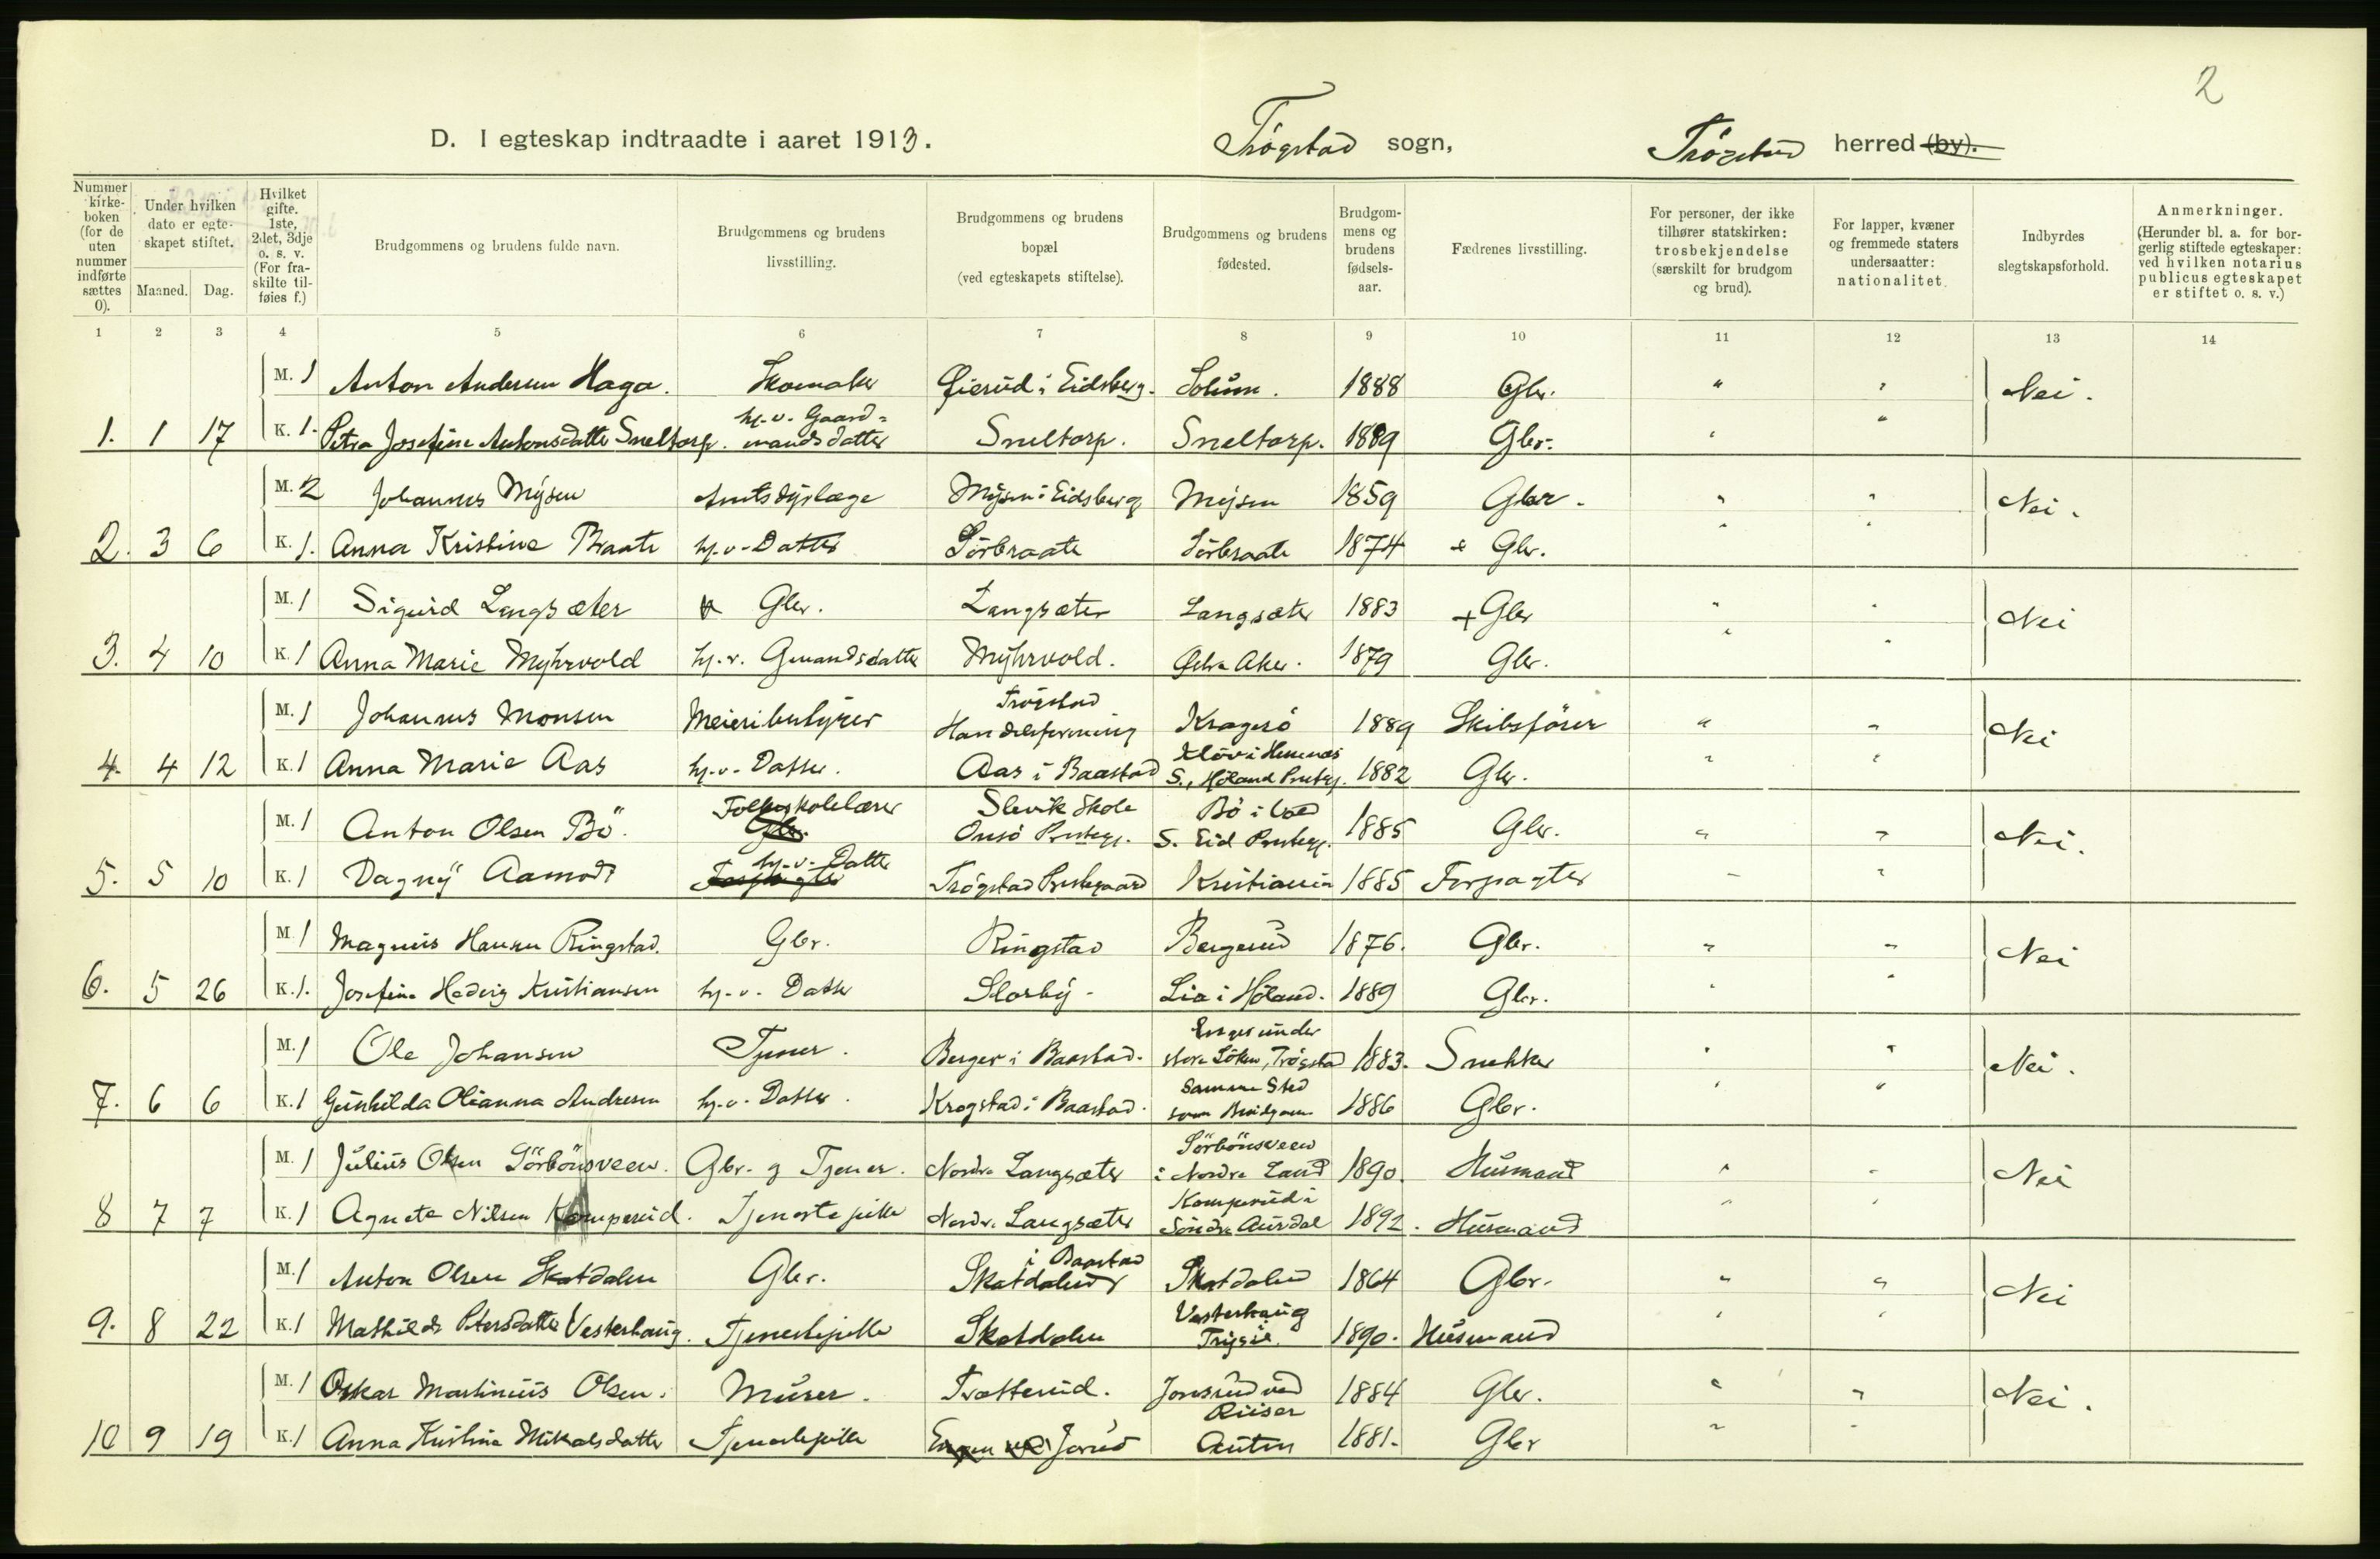 2
D. I egteskap indtraadte i aaret 1913. Trøgstad sogn, Trøgstad herred (by).
Nummer kirke-boken (for de uten nummer indførte sættes 0).
Under hvilken dato er egte-skapet stiftet.
Maaned. Dag.
Hvilket gifte. 1ste, 2det, 3dje o. s. v. (For fra-skilte til-føies f.)
Brudgommens og brudens fulde navn.
Brudgommens og brudens livsstilling.
Brudgommens og brudens bopæl (ved egteskapets stiftelse).
Brudgommens og brudens fødested.
Brudgom-mens og brudens fødsels-aar.
Fædrenes livsstilling.
For personer, der ikke tilhører statskirken: trosbekjendelse (særskilt for brudgom og brud).
For lapper, kvæner og fremmede staters undersaatter: nationalitet.
Indbyrdes slegtskapsforhold.
Anmerkninger. (Herunder bl. a. for bor-gerlig stiftede egteskaper: ved hvilken notarius publicus egteskapet er stiftet o. s. v.)
1 2 3 4 5 6 7 8 9 10 11 12 13 14
M. 1 Anton Andersen Haga. Skomaker Øierud i Eidsberg. Solum. 1888 Gbr. " " Nei.
1. 1 17 K. 1. Petra Josefine Antonsdatter Sneltorp. hj.v. Gaard= mandsdatter Sneltorp. Sneltorp. 1889 Gbr. " "
M. 2 Johannes Mysen Amtsdyrlæge Mysen i Eidsberg Mysen 1859 Gbr. " " Nei.
2. 3 6 K. 1. Anna Kristine Braate hj.v. Datter Sörbraate Sörbraate 1874 + Gbr. " "
M. 1 Sigurd Langsæter Gbr. Langsæter Langsæter 1883 + Gbr " " Nei
3. 4 10 K. 1 Anna Marie Myhrvold hj.v. Gmandsdatter Myhrvold. Østre Aker. 1879 Gbr. " "
M. 1 Johannes Monsen Meieribestyrer Trögstad Handelsforening Kragerö 1889 Skibsförer " " Nei
4. 4 12 K. 1 Anna Marie Aas hj.v. Datter. Aas i Baastad Klöv i Hemnes S., Höland Prestgj. 1882 Gbr. " "
M. 1 Anton Olsen Bö. Folkeskolelærer Gbr. Slevik Skole Onsö Prestegj. Bö i S. Eid Prestegj. 1885 Gbr. " " Nei.
5. 5 10 K. 1 Dagny Aamodt hj.v. Datter Forpagter Trögstad Prestegaard Kristiania 1885 Forpagter " "
M. 1 Magnus Hansen Ringstad. Gbr. Ringstad Bergerud 1876. Gbr. " " Nei
6. 5 26 K. 1. Josefine Hedvig Kristiansen hj.v. Datter Slorby. Lia i Höland. 1889 Gbr. " "
M. 1 Ole Johansen Tjener. Berger i Baastad. Enger under store Löken, Trögstad 1883. Snekker " " Nei.
7. 6 6 K. 1 Gunhilda Olianna Andresen hj.v. Datter. Krogstad i Baastad. Samme Sted som Brudgom 1886 Gbr. " "
M. 1 Julius Olsen Sörbönsveen. Gbr. og Tjener. Nordre Langsæter Sörbönsveen i Nordre Land 1890. Husmand " " Nei
8 7 7 K. 1 Agnete Nilsen Komperud. Tjenestepike Nordr. Langsæter Komperud i Söndre Aurdal 1892. Husmand " "
M. 1 Anton Olsen Skotdalen Gbr. i Baastad Skotdalen Skotdalen 1864 Gbr. " " Nei
9. 8 22 K. 1 Mathilde Petersdatter Vesterhaug. Tjenestepike Skotdalen Vesterhaug i Trysil. 1890. Husmand " "
M. 1 Oskar Martinius Olsen. Murer. Trætterud. Jonsrud ved Riiser 1884 Gbr. " " Nei.
10 9 19 K. 1 Anna Kristine Mikalsdatter Tjenestepike Jorud Auten 1881. Gbr " "